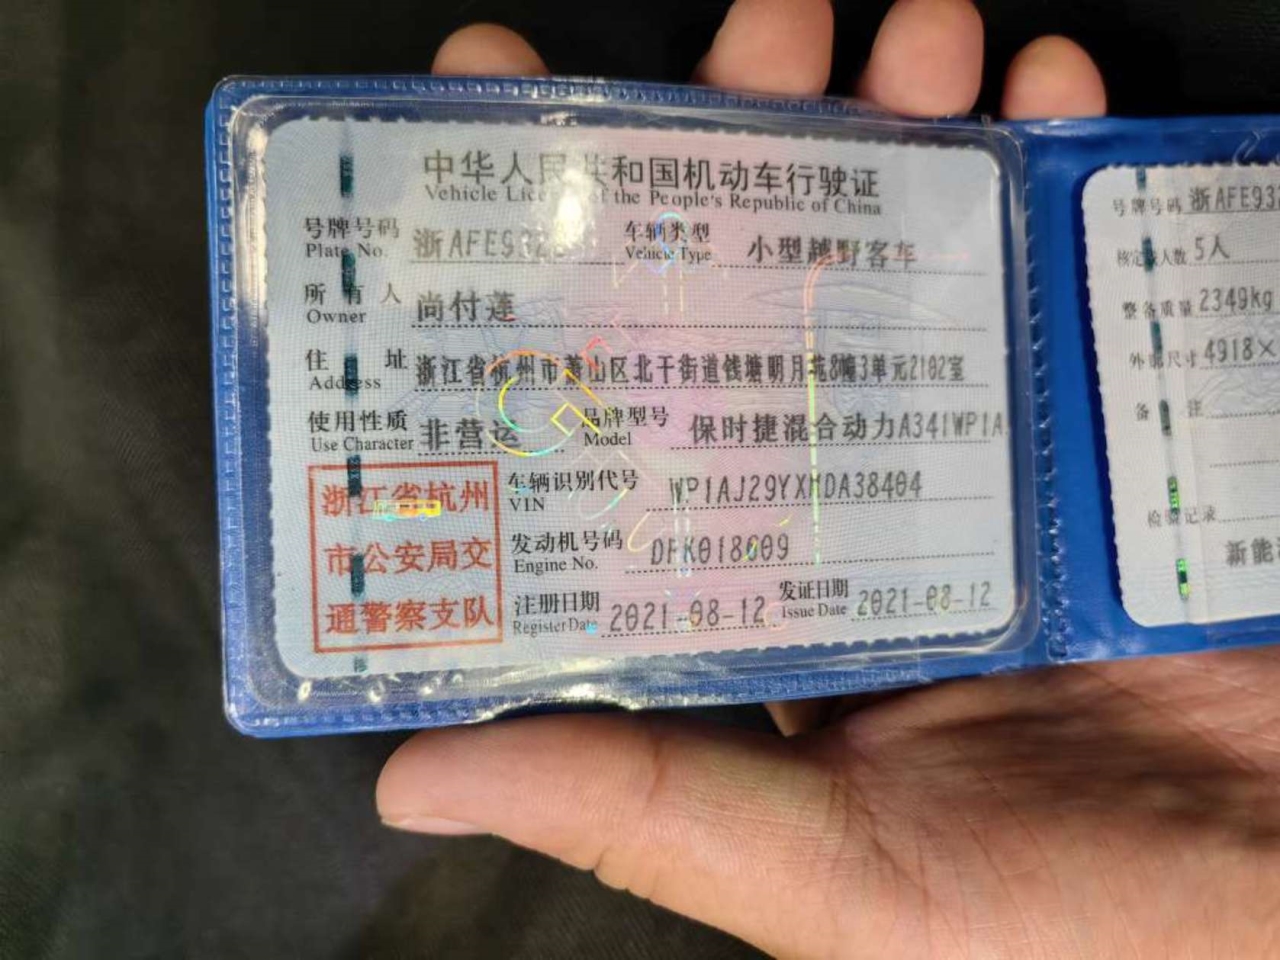 中华人民共和国机动车行驶证
Vehicle License of the People's Republic of China
号牌号码 浙AFE932 车辆类型 小型越野客车
Plate No. Vehicle Type
所有人 尚付莲
Owner
住址 浙江省杭州市萧山区北干街道钱塘明月苑8幢3单元2102室
Address
使用性质 非营运 品牌型号 保时捷混合动力A341WP1A
Use Character Model
浙江省杭州
市公安局交
通警察支队
车辆识别代号 WP1AJ29YXMDA38404
VIN
发动机号码
Engine No.
注册日期 2021-08-12 发证日期 2021-08-12
Register Date Issue Date
号牌号码 浙AFE93
核定载人数 5人
整备质量 2349kg
外廓尺寸 4918×
备注
检验记录
新能